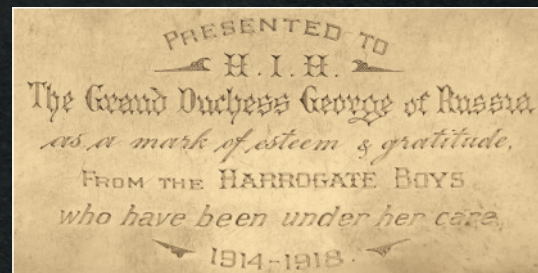 PRESENTED TO
H.I.H.
The Grand Duchess George of Russia
as a mark of esteem & gratitude,
FROM THE HARROGATE BOYS
who have been under her care,
1914-1918.